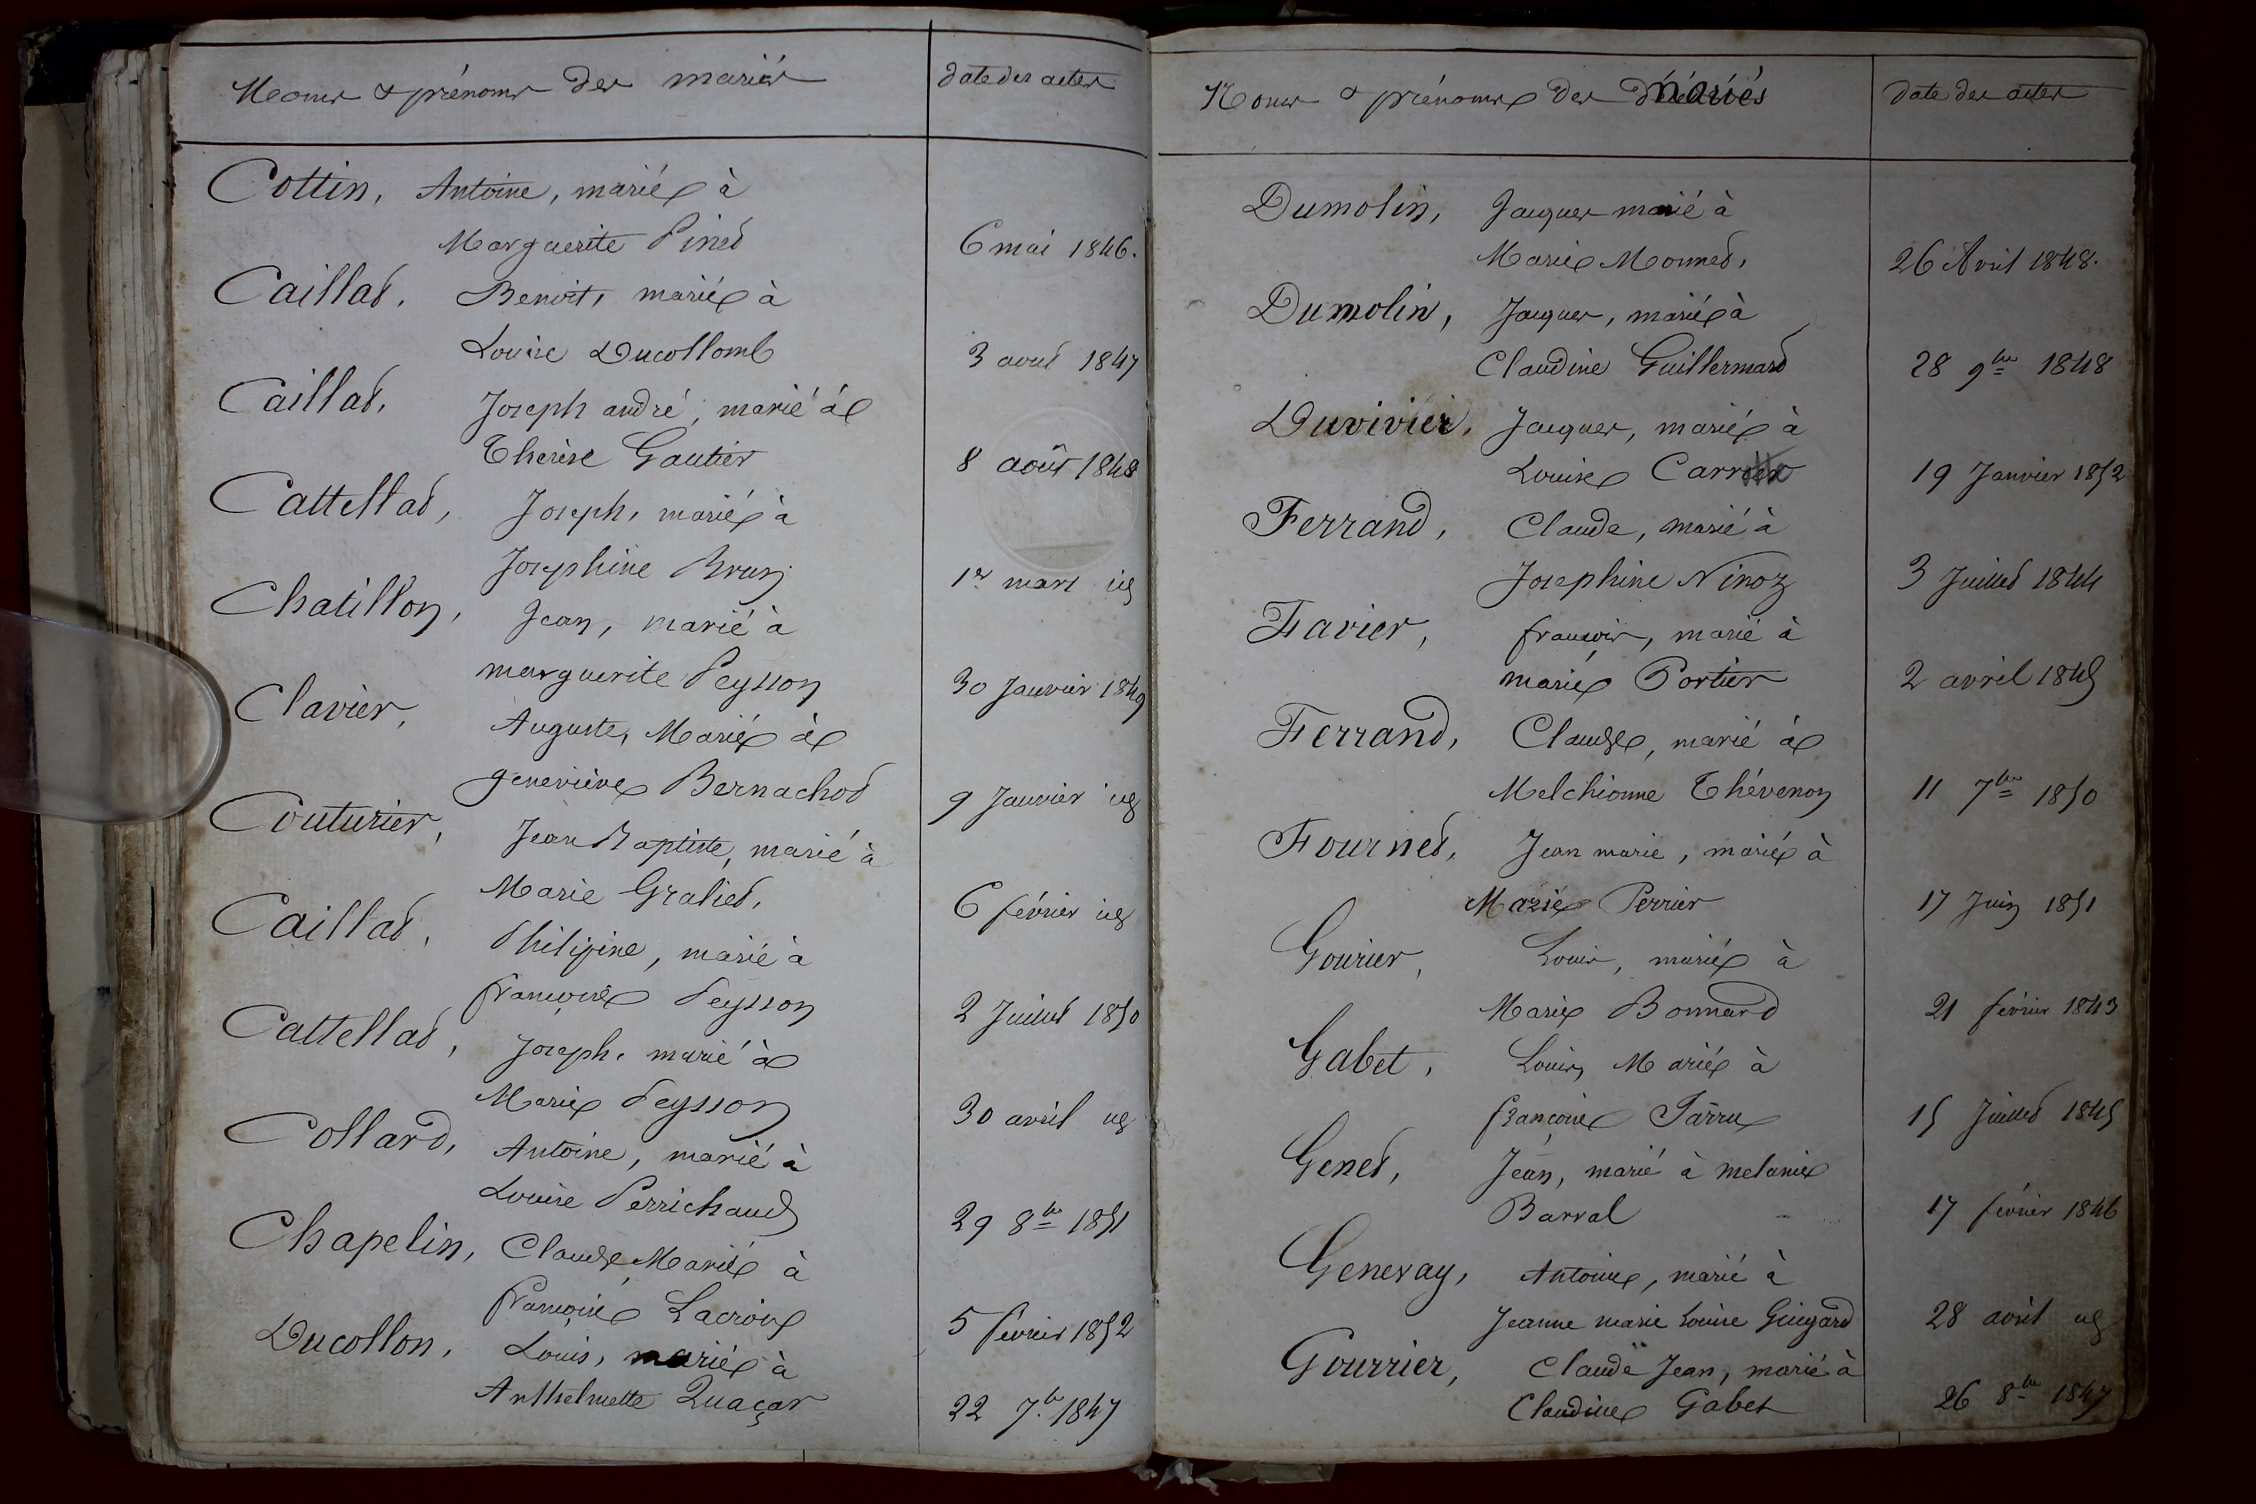 Noms & prénoms des mariés
date des actes
Cottin, Antoine, marié à
Marguerite Pinet 6 mai 1846.
Caillat, Benoit, marié à
Louise Ducollomb 3 aout 1847
Caillat, Joseph andré, marié à
Thérèse Gautier 8 août 1848
Cattellat, Joseph, marié à
Josephine Brun 1er mars id
Chatillon, Jean, marié à
marguerite Peysson 30 Janvier 1849
Clavier, Auguste, Marié à
geneviève Bernachot 9 Janvier id
Couturier, Jean Baptiste, marié à
Marie Graliet, 6 février id
Caillat, Philipine, marié à
françoise Peysson 2 Juillet 1850
Cattellat, Joseph, marié à
Marie Peysson 30 avril id
Collard, Antoine, marié à
Louise Perrichaud 29 8bre 1851
Chapelin, Claude Marié à
françoise Lacroix 5 février 1852
Ducollon, Louis, marié à
Anthelmette Quaçar 22 7.bre 1847
Noms & prénoms des mariés
date des actes
Dumolin, Jacques marié à
Marie Monnet, 26 Avril 1848.
Dumolin, Jacques, marié à
Claudine Guillermard 28 9bre 1848
Duvivier, Jacques, marié à
Louise 19 Janvier 1852
Ferrand, Claude, marié à
Josephine Ninoz 3 Juillet 1844
Favier, françois, marié à
marie Portier 2 avril 1845
Ferrand, Claude, marié à
Melchionne Thévenon 11 7bre 1850
Fournet, Jean marie, marié à
Marie Perrier 17 Juin 1851
Gourier, Louis, marié à
Marie Bonnard 21 février 1843
Gabet, Louis, Marié à
françoise Parru 15 Juillet 1845
Genet, Jean, marié à melanie
Barral 17 février 1846
Genevay, Antoine, marié à
Jeanne marie Louise Guigard 28 avril id
Gourrier, Claude Jean, marié à
Claudine Gabet 26 8bre 1847